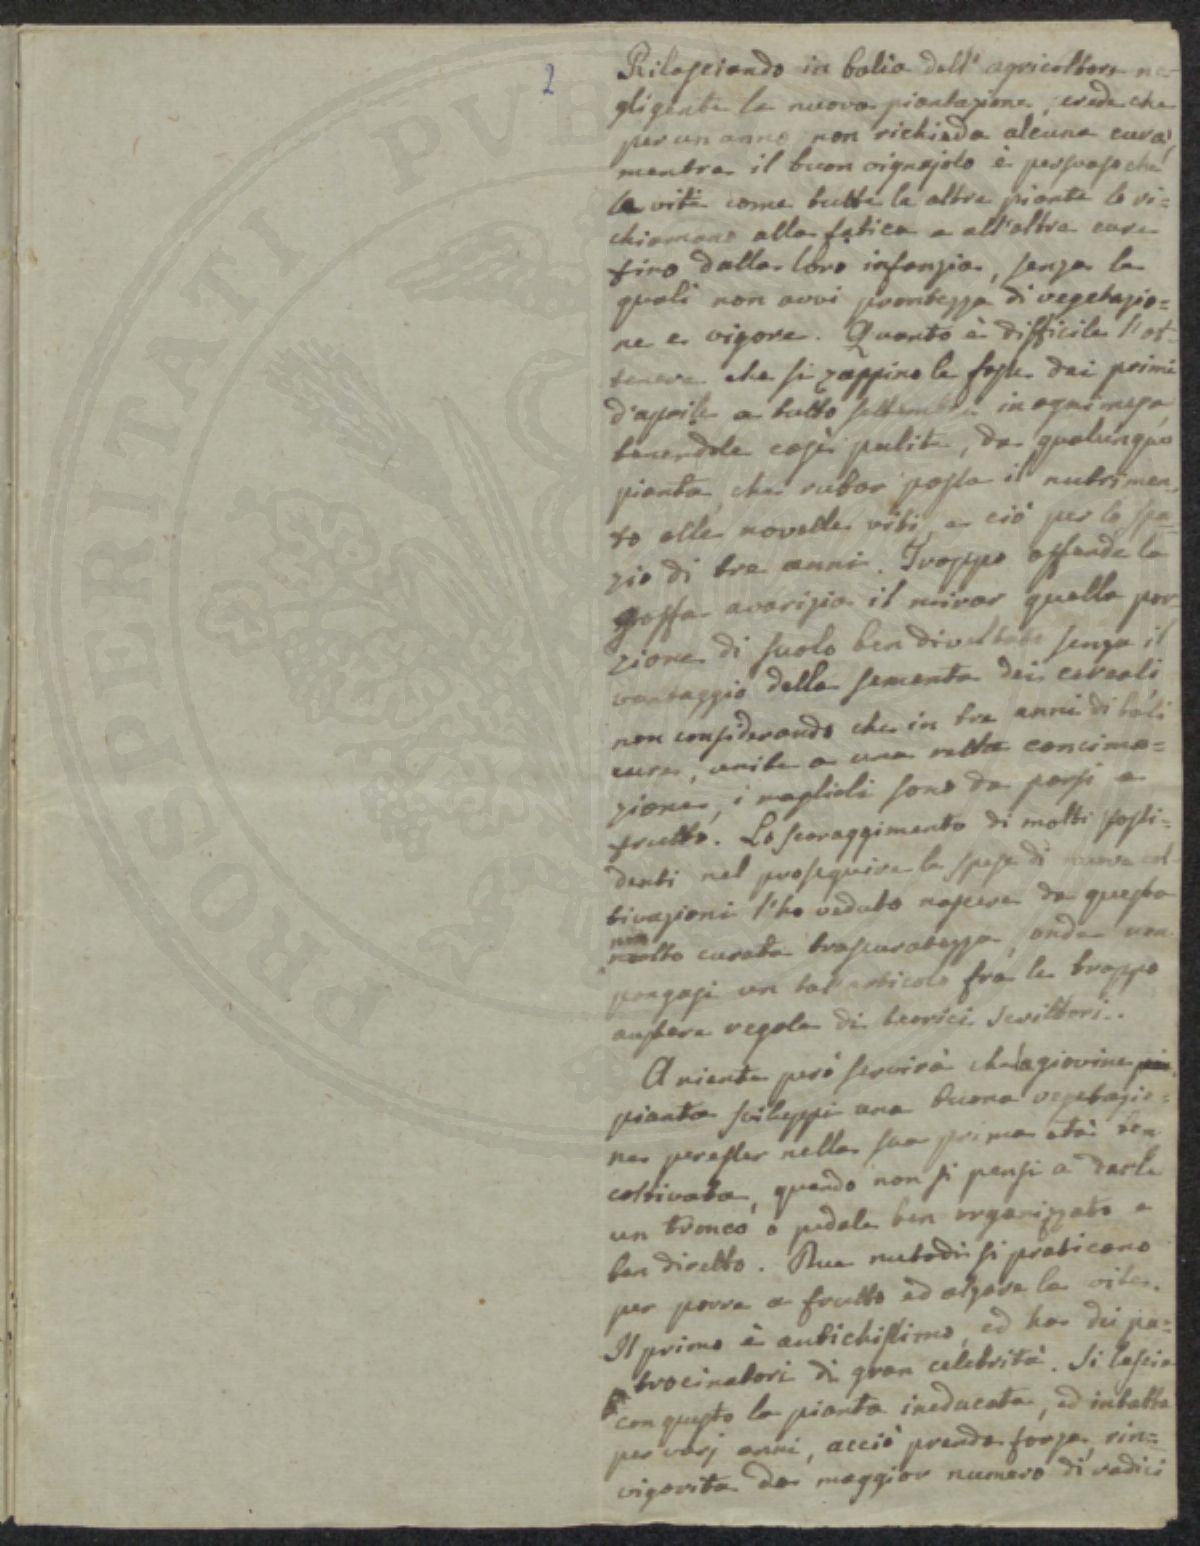 2
Rilasciando in balia dell'agricoltore ne-
gligente la nuova piantazione, crede che
per un anno non richieda alcuna cura,
mentre il buon vignajolo è persuaso che
le viti come tutte le altre piante lo ri=
chiamano alla fatica e all'altre cure
fino dalla loro infanzia, senza le
quali non avvi prontezza di vegetazio=
ne e vigore. Quanto è difficile l'ot-
tenere che si zappino le fosse dai primi
d'aprile a tutto settembre in ogni mese,
tenendole così pulite, da qualunque
pianta, che rubar possa il nutrimen-
to alle novelle viti, e ciò per lo spa-
zio di tre anni. Troppo offende la
goffa avarizia il mirar quella por-
zione di suolo ben diveltato senza il
vantaggio della sementa dei cereali
non considerando che in tre anni di tali
cure, unite a una retta concima=
zione, i maglioli sono da porsi a
frutto. Lo scoraggimento di molti possi=
denti nel proseguire le spese di nuove col-
tivazioni l'ho veduto nascere da questa
non
molto curata trascuratezza, onde non
pongasi un tal articolo fra le troppo
austere regole di teorici scrittori.
A niente però servirà che la giovine
pianta sviluppi una buona vegetazio=
ne per esser nella sua prima età ben
coltivata, quando non si pensi a darle
un tronco o pedale ben organizzato e
ben diretto. Due metodi si praticano
per porre a frutto ed alzare la vite.
Il primo è antichissimo, ed ha dei pa=
trocinatori di gran celebrità. Si lascia
con questo la pianta ineducata, ed intatta
per varj anni, acciò prenda forza, rin=
vigorita da maggior numero di radici
PROSPERITATI PUB